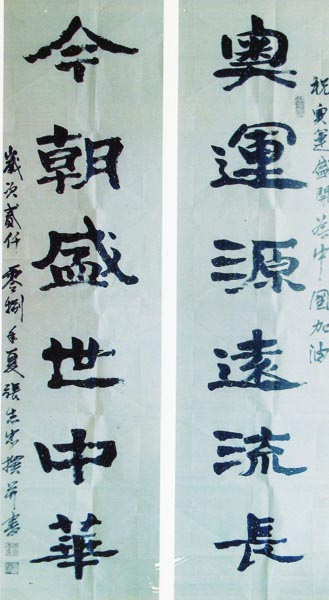 祝奥運盛開為中國加油
奥運源遠流長
今朝盛世中華
歲次貳仟零捌年夏張志忠撰并書